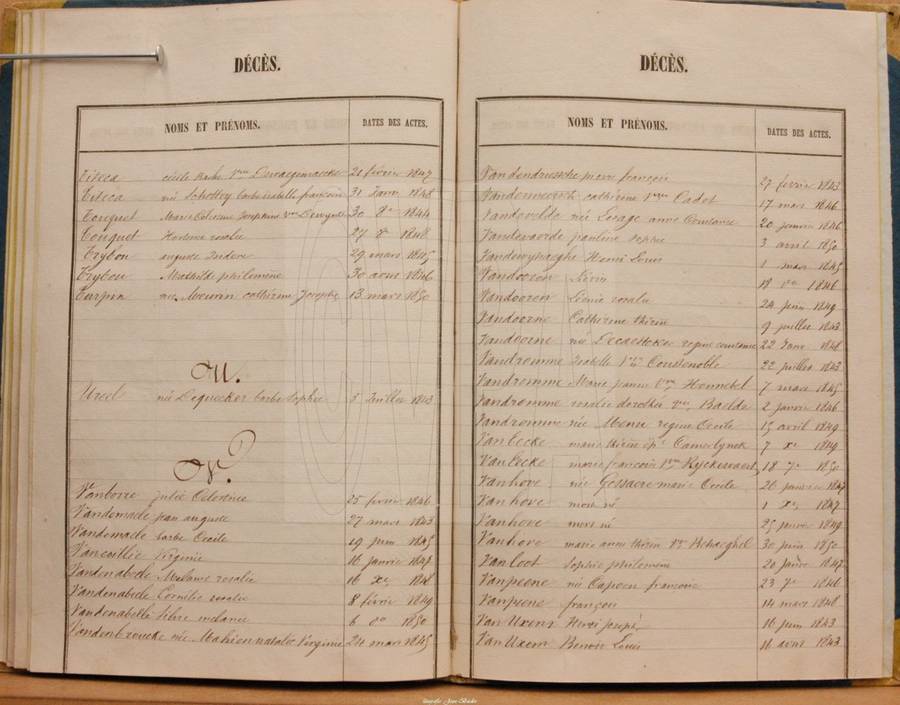 DÉCÈS.
NOMS ET PRÉNOMS. DATES DES ACTES.
Titeca cécile Barbe Vve 21 février 1847
Titeca née barbe isabelle françoise 31 Janv 1848
Touquet Marie Celestine Josephine Vve 30 1844
Touquet Hortense rosalie 27 1848
Trybou auguste Isidore 29 mars 1845
Trybou Mathilde philomene 30 aout 1846
Turpin née Meurin cathérine Josephe 13 mars 1850
U.
Urcel née Dequecker barbe sophie 5 Juillet 1843
V.
Vanborre julie Celestine 25 février 1846
Vandemaele jean auguste 27 mars 1843
Vandemaele barbe Cecile 19 juin 1845
Virginie 16 janvier 1847
Vandenabeele Melanie rosalie 16 Xe 1848
Vandenabeele Cornélie rosalie 8 février 1849
Vandenabeele mélanie 6 do 1850
Vandenbroucke née Mahieu natalie Virginie 24 mars 1845
DÉCÈS.
NOMS ET PRÉNOMS. DATES DES ACTES.
Vandendriessche pierre françois 27 février 1843
cathérine Vve Cadet 17 mars 1846
Vandevelde née Lesage anne Constance 20 janvier 1846
Vandevoorde pauline sophie 3 avril 1850
Vandewynckele Henri Louis 1 mars 1845
Vandooren Liévin 18 1846
Vandooren Léonie rosalie 24 juin 1849
Vandoorne Cathérine thérèse 9 juillet 1843
Vandoorne née Decaesteker regine constance 22 Janv 1848
Vandromme Isabelle Vve Coustenoble 22 juillet 1843
Vandromme Marie jeanne Vve Hennebel 7 mars 1845
Vandromme rosalie dorothée Vve Baelde 2 janvier 1846
Vandromme née Menu regine Cecile 15 avril 1849
VanEecke marie thérèse Camerlynck 7 Xe 1849
VanEecke marie françoise Vve Ryckewaert 18 7e 1850
Vanhove née Gossaere marie Cecile 26 janvier 1847
Vanhove mort né 1 Xe 1847
Vanhove mort né 25 janvier 1849
Vanhove marie anne thérèse Vve 30 juin 1850
Vanloot Sophie philomene 20 janvr 1847
Vanpeene née Capoen françoise 23 7e 1846
Vanpeene françois 14 mars 1848
VanUxem Henri joseph 16 juin 1843
VanUxem Benoit Louis 16 avril 1843